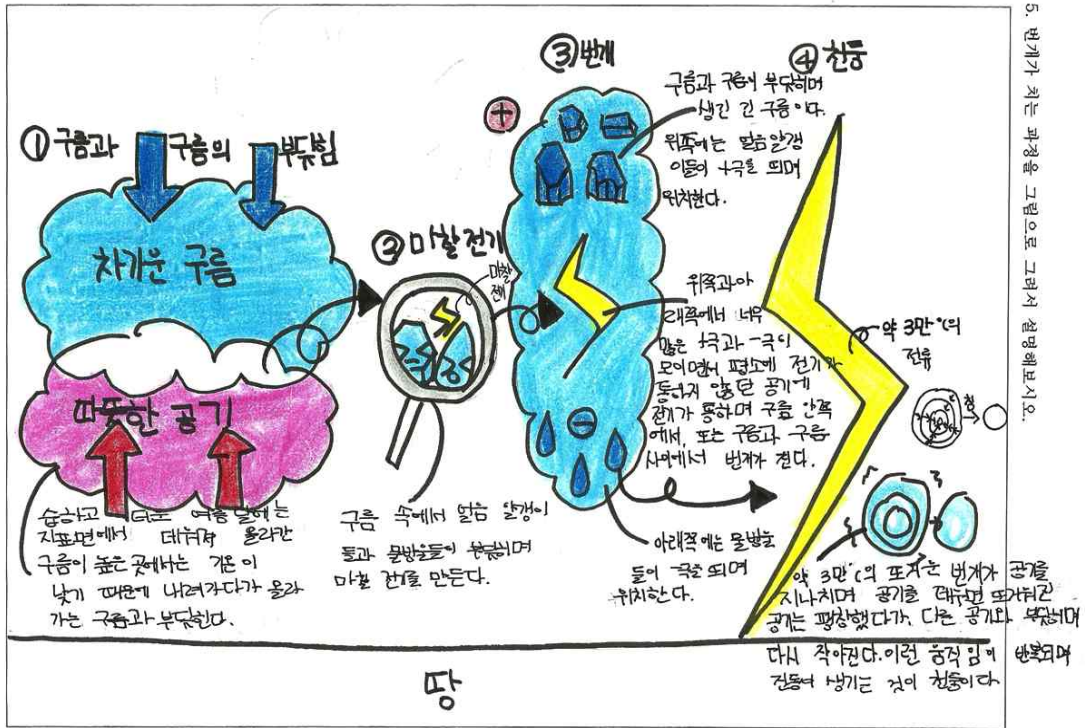 5. 번개가 치는 과정을 그림으로 그려서 설명해보시오.
① 구름과 구름의 부딪힘
차가운 구름
따뜻한 공기
습하고 더운 여름 날에는
지표면에서 데워져 올라간
구름이 높은 곳에서는 기온이
낮기 때문에 내려가다가 올라
가는 구름과 부딪힌다.
② 마찰 전기
마찰
전기
구름 속에서 얼음 알갱이
들과 물방울들이 부딪히며
마찰 전기를 만든다.
③ 번개
+
구름과 구름이 부딪히며
생긴 긴 구름이다.
위쪽에는 얼음알갱
이들이 +극을 띄며
위치한다.
위쪽과 아
래쪽에서 너무
많은 +극과 -극이
모이면서 평소에 전기가
통하지 않던 공기에
전기가 통하며 구름 안쪽
에서, 또는 구름과 구름
사이에서 번개가 친다.
-
아래쪽에는 물방울
들이 -극을 띄며
위치한다.
④ 천둥
약 3만 °C의
전류
약 3만 °C의 뜨거운 번개가 공기를
지나치며 공기를 데우면 뜨거워진
공기는 팽창했다가, 다른 공기와 부딪히며
다시 작아진다. 이런 움직임이 반복되며
진동이 생기는 것이 천둥이다
땅